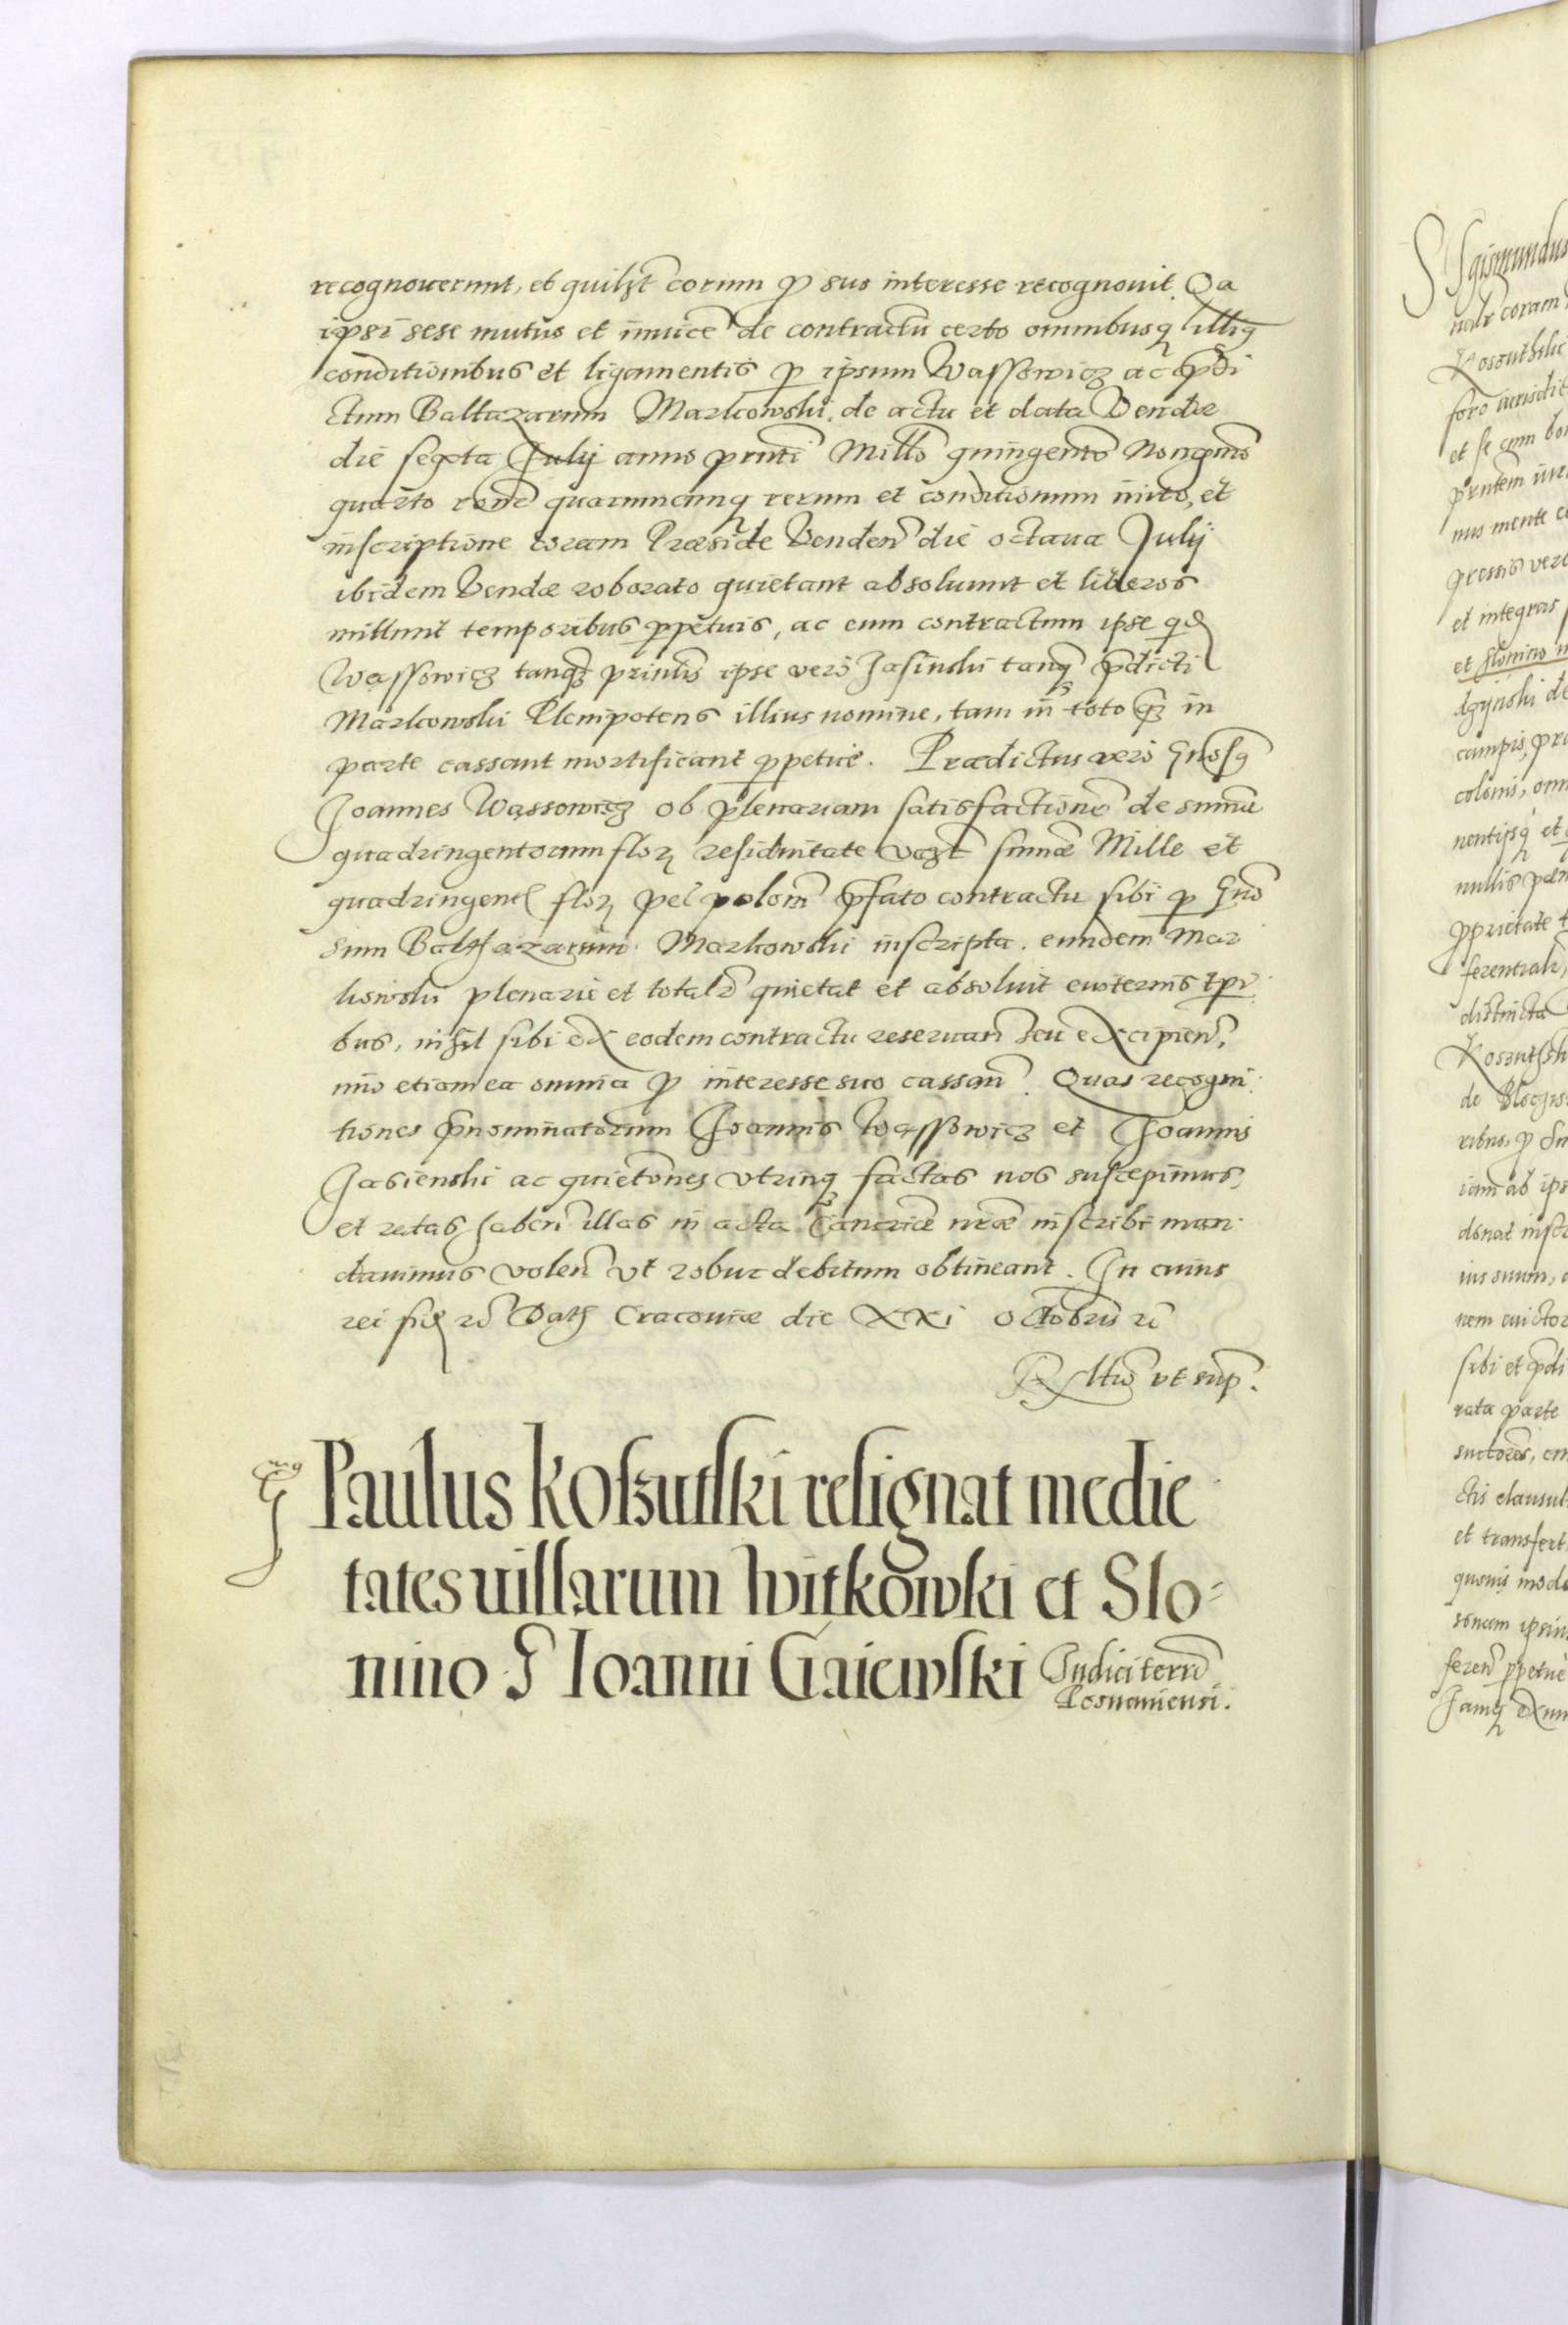 recognouerunt, et quilzt eorum p suo interesse recognouit. Qa
ipsi sese mutuo et inuice de contractu certo omnibusq illiq
conditionibus et ligamentis p ipsum Wassowicz ac pdi
ctum Baltazarum Markowski. de actu et data Vendæ
die sexta Julij anno prnti Millo quingento Nongmo
quarto rone quarumcunq rerum et conditionum inito, et
inscriptione coram Præside Venden die octaua Julij
ibidem Vendæ roborato quietant absoluunt et liberos
mittunt temporibus ppetuis, ac eum contractum ipse qd
Wassowicz tanq prinlis ipse vero Jasinski tanq pdicti
Markowski Plenipotens illius nomine, tam in toto q in
parte cassant mortificant ppetue. Prædictus vero Gnosq
Joannes Wassowicz ob plenariam satisfactione de summa
quadringentorum flor residuitate summæ Mille et
quadringent flor pec polon pfato contractu sibi p Gno
sum Balthazarum Markowski inscripta. eundem Mar
kowski plenarie et totalr quietat et absoluit euiternis tpi
bus, nihil sibi ex eodem contractu reseruan seu excipien,
imo etiam ea omnia p interesse suo cassan. Quas recogni
tiones pnominatorum Joannis Wassowicz et Joannis
Jasienski ac quietones vtrinq factas nos suscepimus,
et ratas haben illas in acta Cancriæ nræ inscribi man
dauimus volen vt robur debitum obtineant. In cuius
rei fid rc Dat Cracouiæ die XXi octobris rc
Rltio vt sup.
G Paulus Koszutski resignat medie
tates uillarum Witkowki et Slo
nino G Joanni Gaiewski Judici terre
Posnaniensi.
Sigismundus
coram
et se cum bo
prntem
mus mente
vero
et integras
et Slonino
dzynski de
campis, pra
colonis, omn
nentijsq et
nullis
pprietate
ferentialr,
distincta
Koszutsk
de
ribus, p
iam ab ips
donat inscr
ius suum,
nem euictor
sibi et pdi
rata parte
suctores, em
ctis clausul
et transfert
quouis modo
ipsius
feren ppetue
Jamq exnu